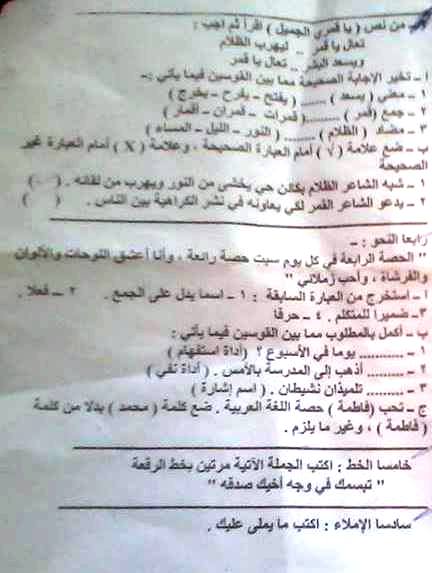 من نص ( يا قمري الجميل ) اقرأ ثم اجب :
تعال يا قمر .. ليهرب الظلام
ويسعد البشر .. تعال يا قمر
أ - تخير الإجابة الصحيحة مما بين القوسين فيما يأتي :-
١ - معنى ( يسعد ) ...... ( يفتح - يفرح - يخرج )
٢ - جمع ( قمر ) ........ ( قمرات - قمران - أقمار )
٣ - مضاد ( الظلام ) ....... ( النور - الليل - المساء )
ب - ضع علامة ( √ ) أمام العبارة الصحيحة ، وعلامة ( X ) أمام العبارة غير
الصحيحة
١ - شبه الشاعر الظلام بكائن حي يخشى من النور ويهرب من لقائه . ( )
٢ - يدعو الشاعر القمر لكي يعاونه في نشر الكراهية بين الناس . ( )
رابعا النحو : -
" الحصة الرابعة في كل يوم سبت حصة رائعة ، وأنا أعشق اللوحات والألوان
والفرشاة ، وأحب زملائي "
أ - استخرج من العبارة السابقة : ١ - اسما يدل على الجمع . ٢ - فعلا .
٣- ضميرا للمتكلم . ٤ - حرفا
ب - أكمل بالمطلوب مما بين القوسين فيما يأتي :
١ - .......... يوما في الأسبوع ؟ ( أداة استفهام )
٢ - .......... أذهب إلى المدرسة بالأمس . ( أداة نفي )
٣ - .......... تلميذان نشيطان . ( اسم إشارة )
ج - تحب ( فاطمة ) حصة اللغة العربية . ضع كلمة ( محمد ) بدلا من كلمة
( فاطمة ) ، وغير ما يلزم .
خامسا الخط : اكتب الجملة الآتية مرتين بخط الرقعة
" تبسمك في وجه أخيك صدقه "
سادسا الإملاء : اكتب ما يملى عليك .